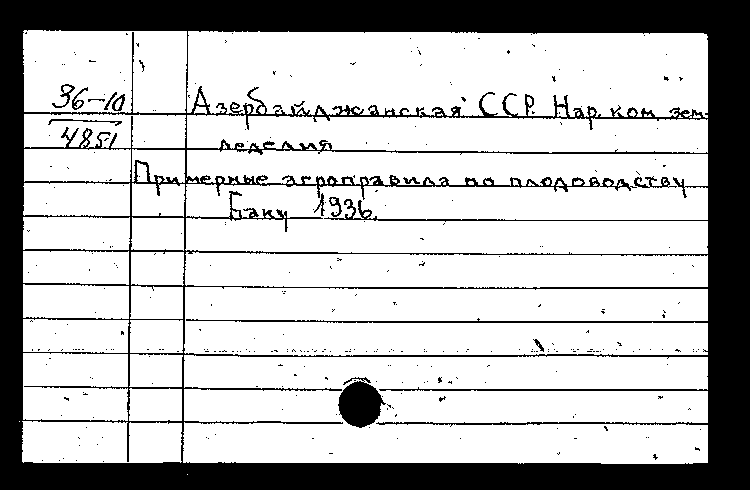 36-10
4851
Азербайджанская ССР. Нар. ком. зем-
леделия
Примерные агроправила по плодоводству
Баку 1936.